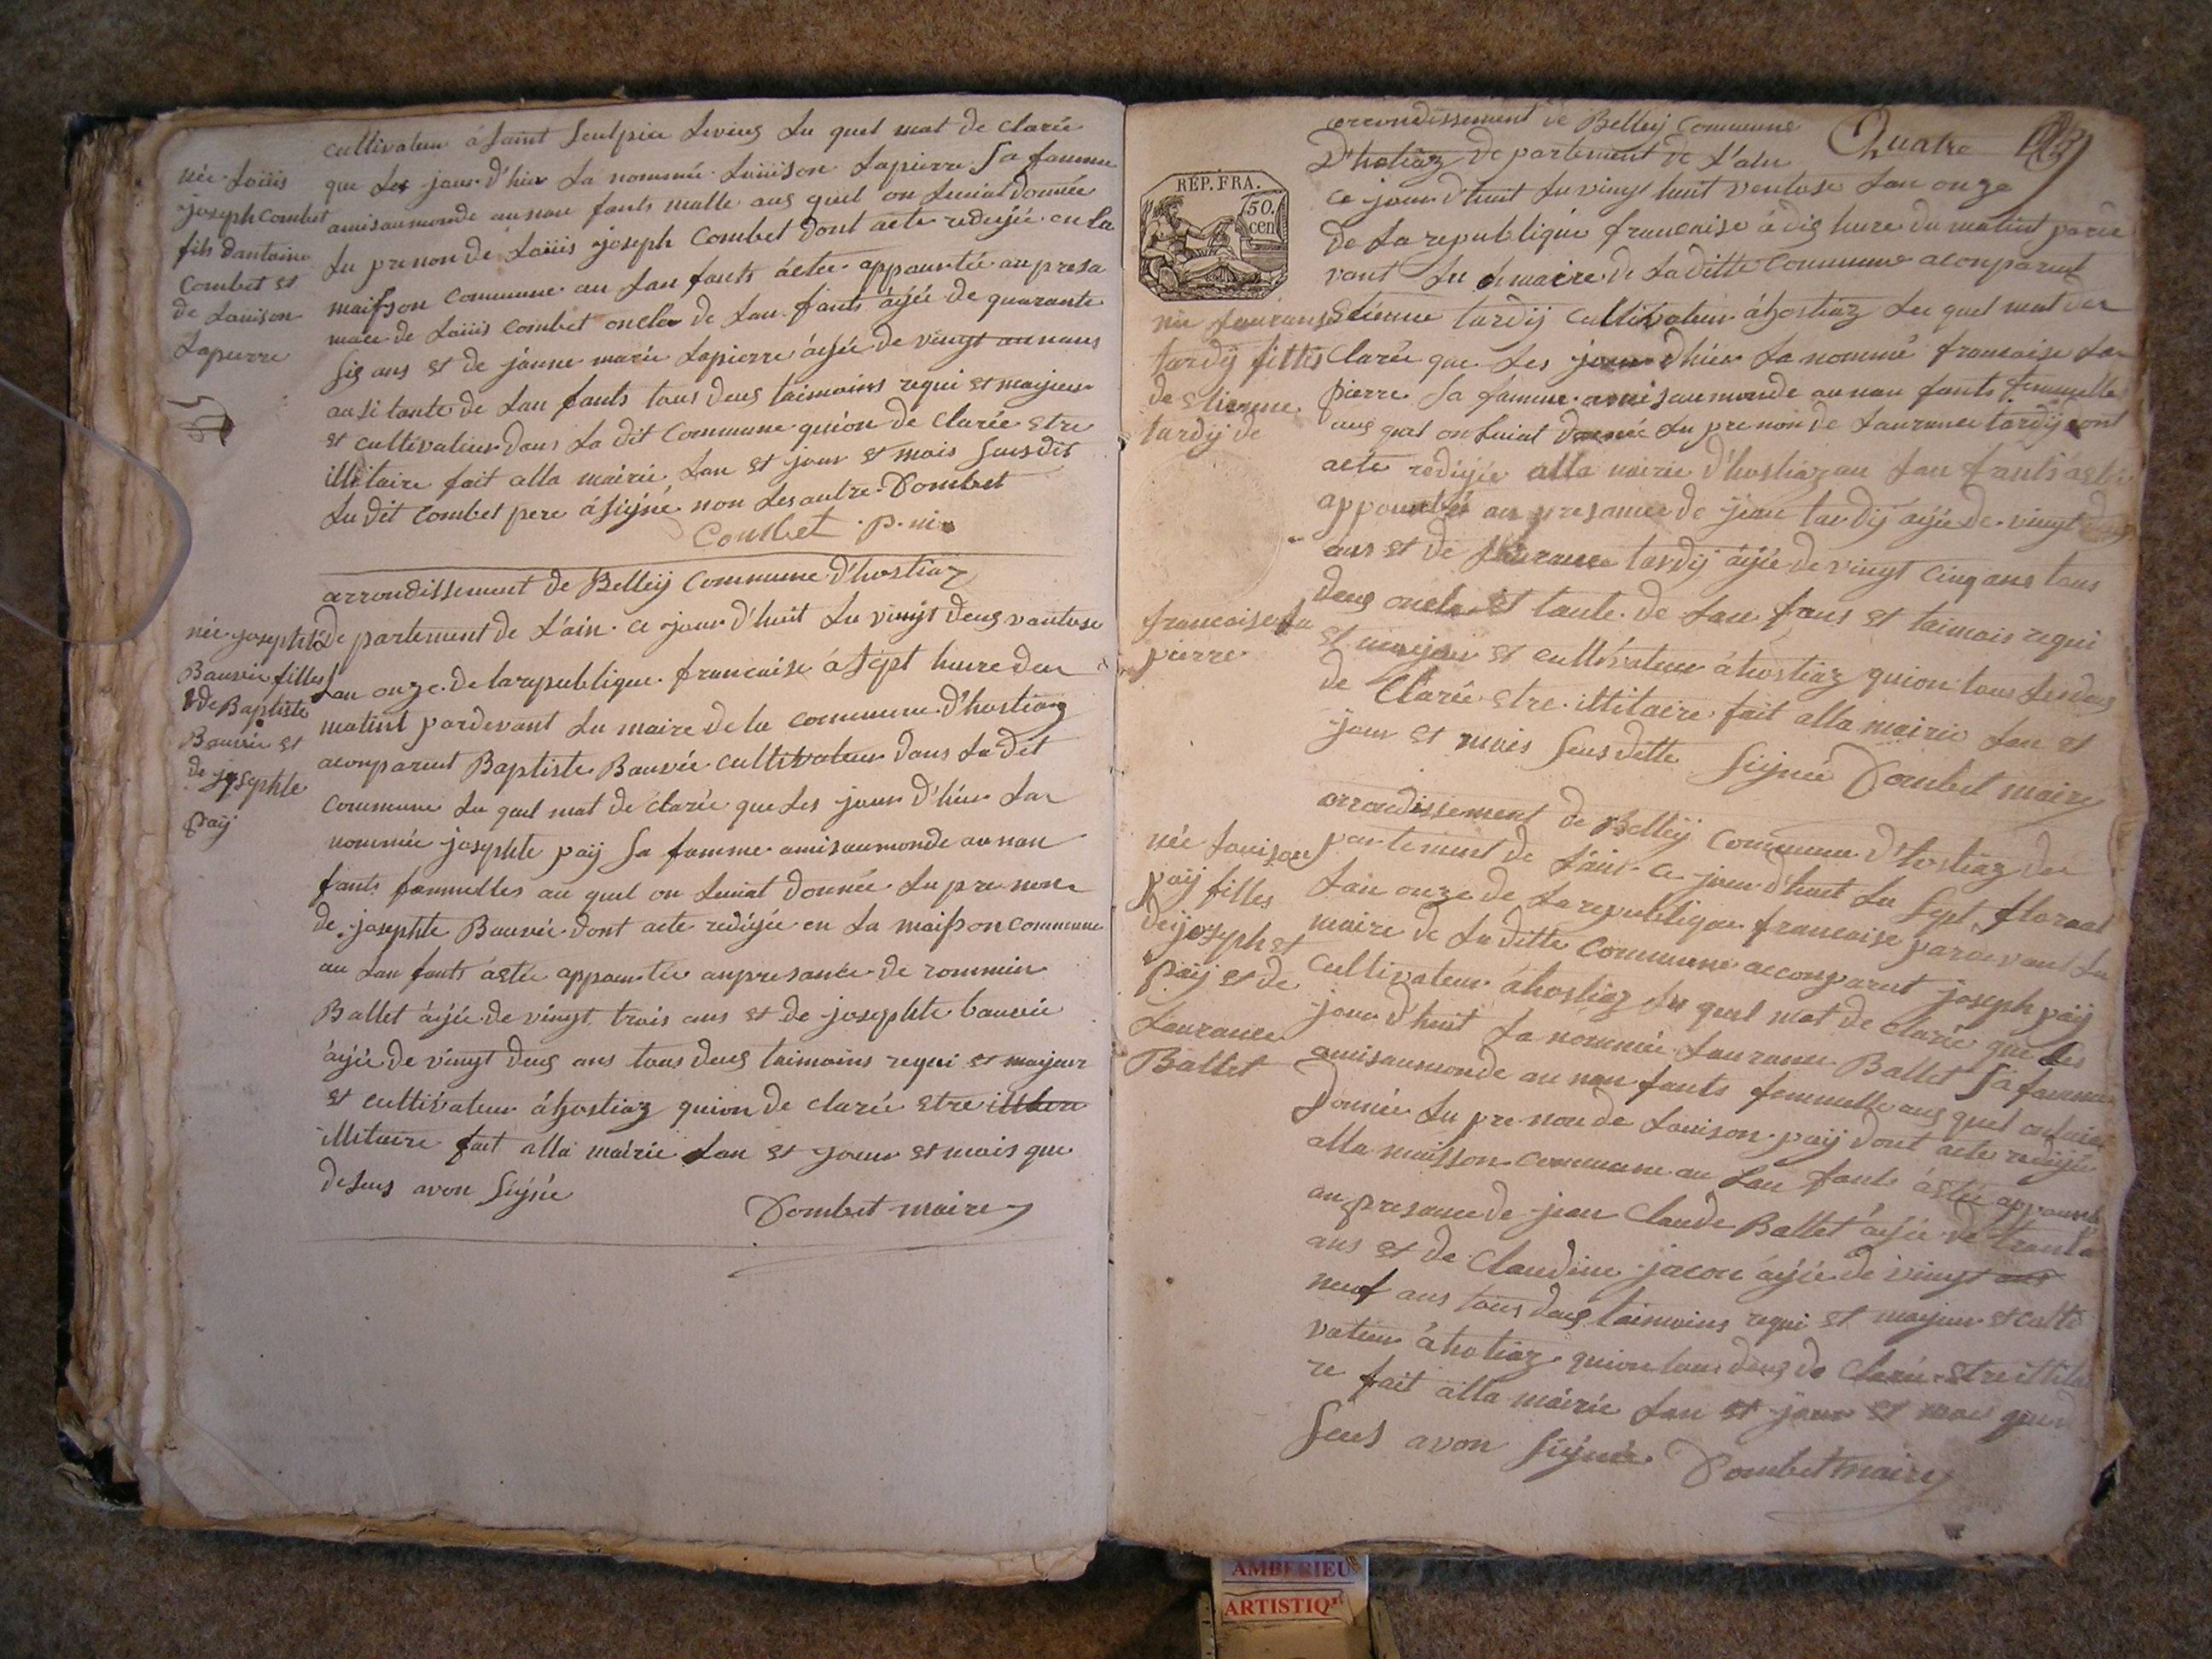 cultivateur á Saint Seulpice Levieus Lu quel mat de clarée
que Les jour d'hier La nommée Louïison Lapierre Sa famme
amisaumonde aunau fants malle aus quel on Luniat donnée
Lu pre non de Loüis joseph Combet dont acte redijée en La
maifson Commune au Lau fants áetee appourtée an presa
mace de Loüis Combet oncle de Lau fants âjée de quarante
sis ans et de janne marie Lapierre âjée de vingt
ausi tante de Lau fants tous deus taimoins requi et majeur
et cultivateur dans La dit Commune quion de clarée Etre
illitaire fait alla mairie Lan et jour et mois Seusdit
Lu dit Combet pere á signé non Les autre Combet
Combet
née Loüis
joseph Combet
fils dantoine
Combet et
de Louison
Lapierre
arrondissement de Belleÿ Commune d'hostiaz
De partement de L'ain ce jour d'huit Lu vingt deus vantose
Lan onze de la republique francaise á sept heure deu
matint pardevant Lu maire de la commune d'hostiaz
aconparut Baptiste Bauvée cultivateur dans La dit
Commune Lu quel mat de clarée que Les jour d'hier La
nommée josephte paÿ Sa famme amisaumonde au nau
fants fammelles au quel on Luniat donnée Lu pre non
de josephte Bauvée dont acte redijée en La maifson commune
au Lau fants áetée appourtée anpresance de rommin
Ballet âjée de vingt trois ans et de josephte bauvée
âjée de vingt deus ans tous deus taimoins requi et majeur
et cultivateur áhostiaz quion de clarée etre
illitaire fait alla mairie Lan et jour et mois que
deseus avon Signée
Combet maire
née josephte
Bauvée filles
de Baptiste
Bauvée et
de josephte
paÿ
arrondissement de Belleÿ Commune
Quatre
D'hotiaz De partement de L'ain
ce jour d'huit Lu vingt huit ventose Lan onze
de La republique francaise á dis heure du matint parde
vant Lu maire de Laditte Commune aconparut
Etienne tardÿ Cultivateur áhostiaz Lu quel mat de
Clarée que Les jour d'hier La nommé francaise La
pierre Sa famme amisaumonde aunau fants femmelle
aus quel on Luniat donnée Lu pre non de Laurance tardÿ dont
acte redijée alla mairie d'hostiaz au Lau fants áetée
appourtée an presance de jean tardÿ âjée de vingt
ans et de Laurance tardÿ âjée de vingt cinq ans tous
deus oncle et tante de Lau fans et taimois requi
et majeur et cultivateur áhostiaz quion tous Lesdeus
de Clarée etre illitaire fait alla mairie Lan et
jour et mois Seusditte Signée Combet maire
RÉP. FRA.
50.
cen
née Laurance
tardÿ filles
de Etienne
tardÿ de
francaise La
pierre
arrondissement de Belleÿ Commune d'hostiaz de
partement de L'ain ce jour d'huit Lu Sept floreal
Lan onze de La republique francaise pardevant Lu
maire de La ditte Commune aconparut joseph paÿ
cultivateur áhostiaz Lu quel mat de clarée que Les
jour d'huit La nommée Laurance Ballet Sa famme
amisaumonde au nau fants femmelle aus quel
donnée Lu pre non de Louison paÿ dont acte redijée
alla maisson Commune au Lau fants áetée appourtée
anpresance de jean Claude Ballet âjée de trante
ans et de Claudine âjée de vingt
neuf ans tous deus taimoins requi et majeur et culti
vateur áhotiaz quion tous deus de clarée etre illitai
re fait alla mairie Lan et jour et mois que de
Seus avon Signée Combet maire
née Louison
paÿ filles
de joseph
paÿ et de
Laurance
Ballet
AMBERIEU
ARTISTIQ